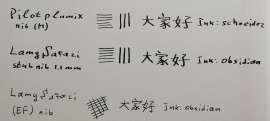 Pilot plumix 大家好 Ink: schneider
nib (M)
Lamy Safari 大家好 Ink: obsidian
stub nib 1.1 mm
Lamy Safari 大家好 Ink: obsidian
(EF) nib